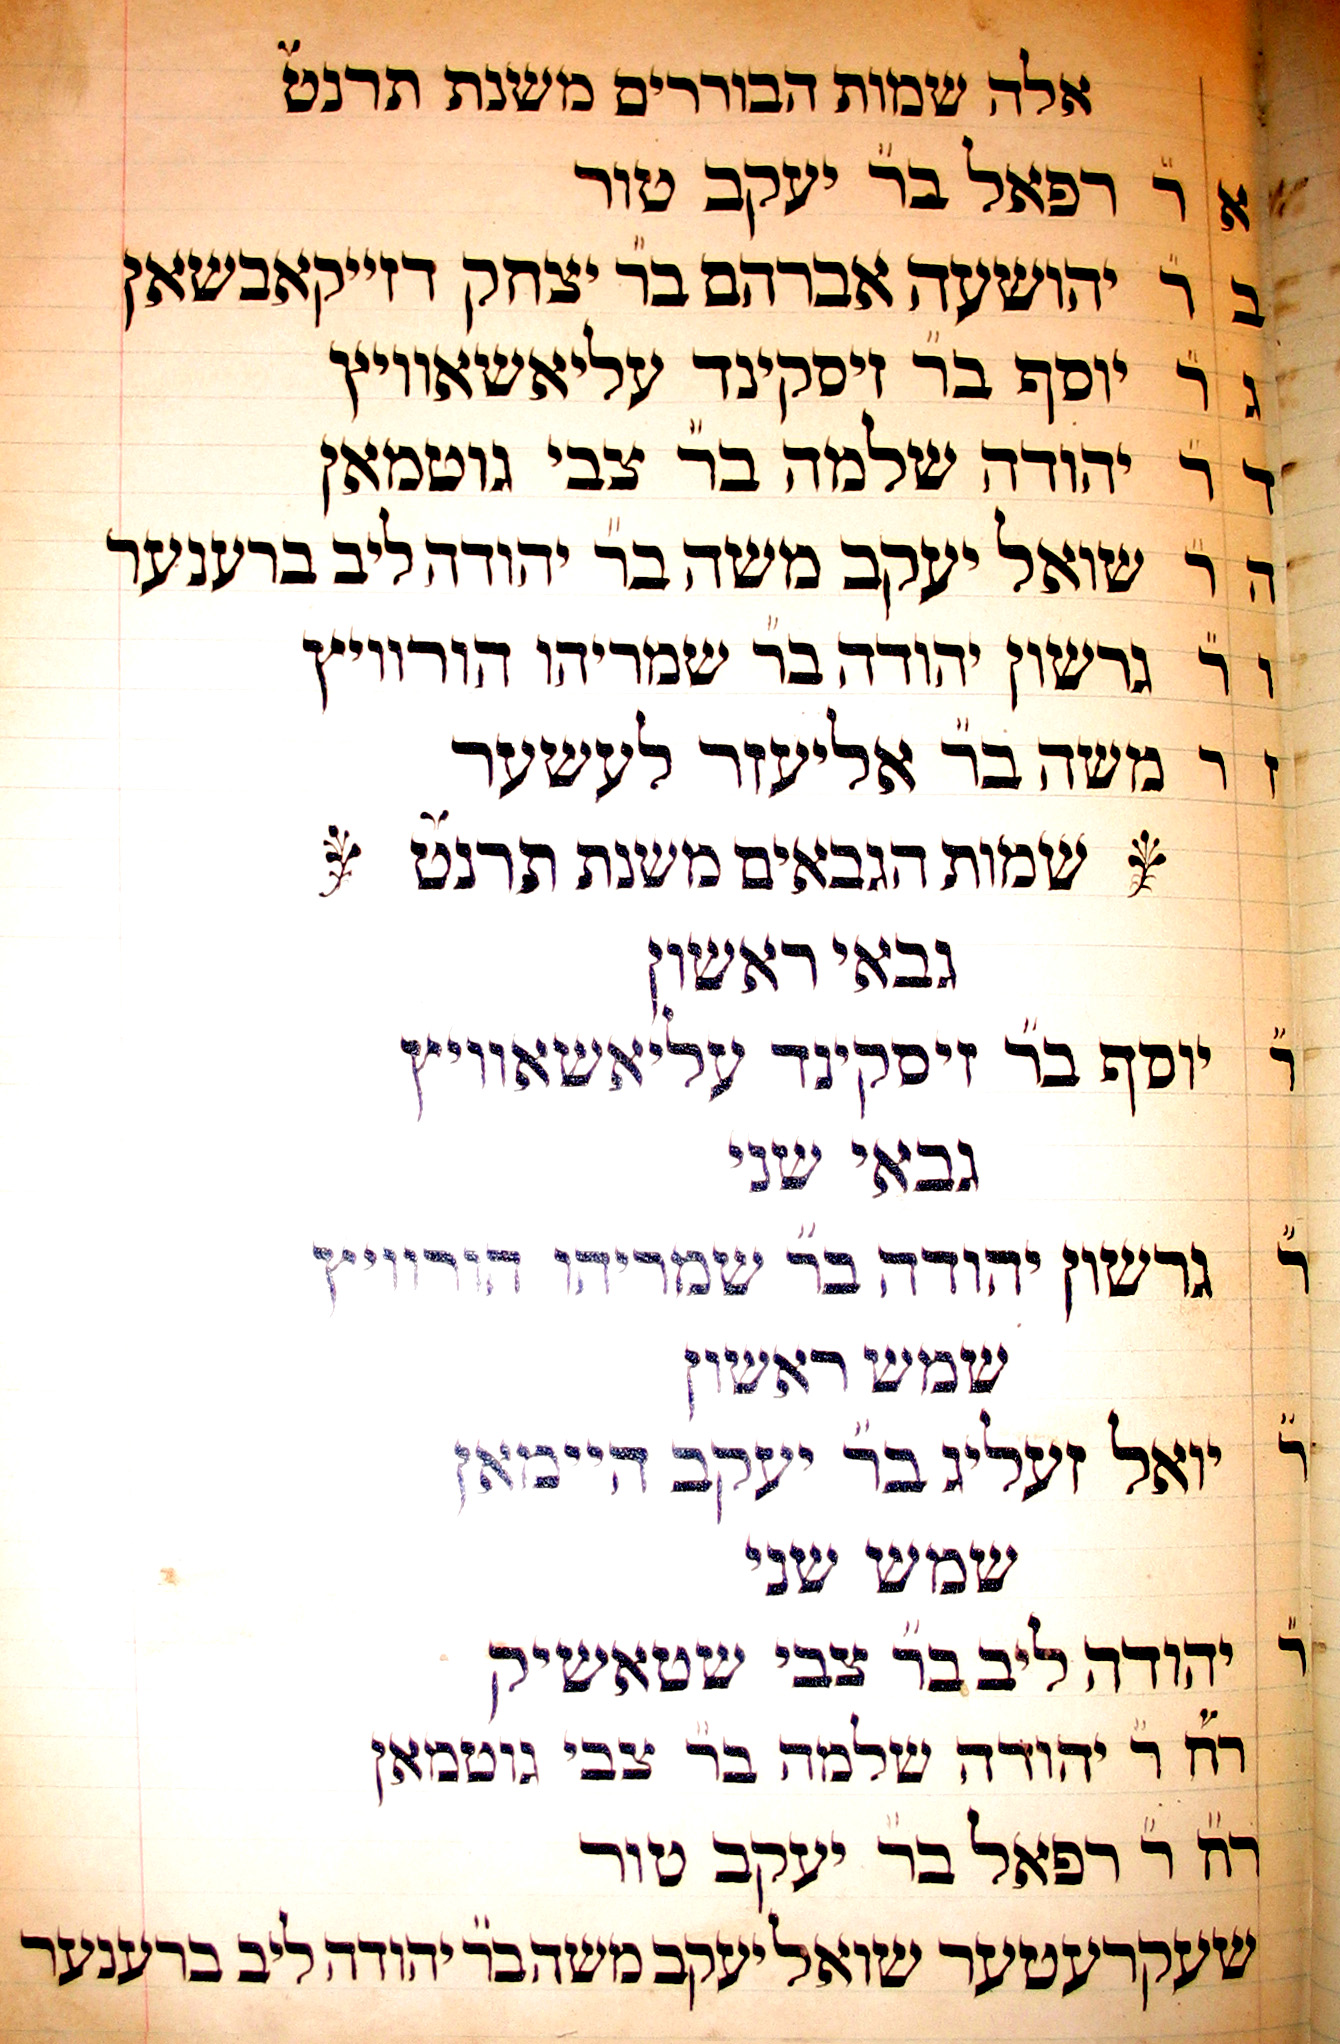 אלה שמות הבוררים משנת תרנ״ט
א ר״ רפאל בר״ יעקב טור
ב ר״ יהושעה אברהם בר״ יצחק דזייקאבשאן
ג ר״ יוסף בר״ זיסקינד עליאשאוויץ
ד ר״ יהודה שלמה בר״ צבי גוטמאן
ה ר״ שואל יעקב משה בר״ יהודה ליב ברענער
ו ר״ גרשון יהודה בר״ שמריהו הורוויץ
ז ר משה בר״ אליעזר לעשער
שמות הגבאים משנת תרנ״ט
גבאי ראשון
ר״ יוסף בר״ זיסקינד עליאשאוויץ
גבאי שני
ר״ גרשון יהודה בר״ שמריהו הורוויץ
שמש ראשון
ר״ יואל זעליג בר״ יעקב היימאן
שמש שני
ר״ יהודה ליב בר״ צבי שטאשיק
ר״ח ר״ יהודה שלמה בר״ צבי גוטמאן
ר״ח ר״ רפאל בר״ יעקב טור
שעקרעטער שואל יעקב משה בר״ יהודה ליב ברענער